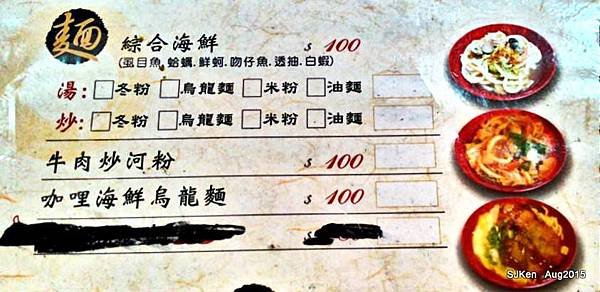 麵
綜合海鮮 $ 100
(虱目魚.蛤蠣.鮮蚵.吻仔魚.透抽.白蝦)
湯: □冬粉 □烏龍麵 □米粉 □油麵
炒: □冬粉 □烏龍麵 □米粉 □油麵
牛肉炒河粉 $ 100
咖哩海鮮烏龍麵 $ 100
SJKen Aug2015